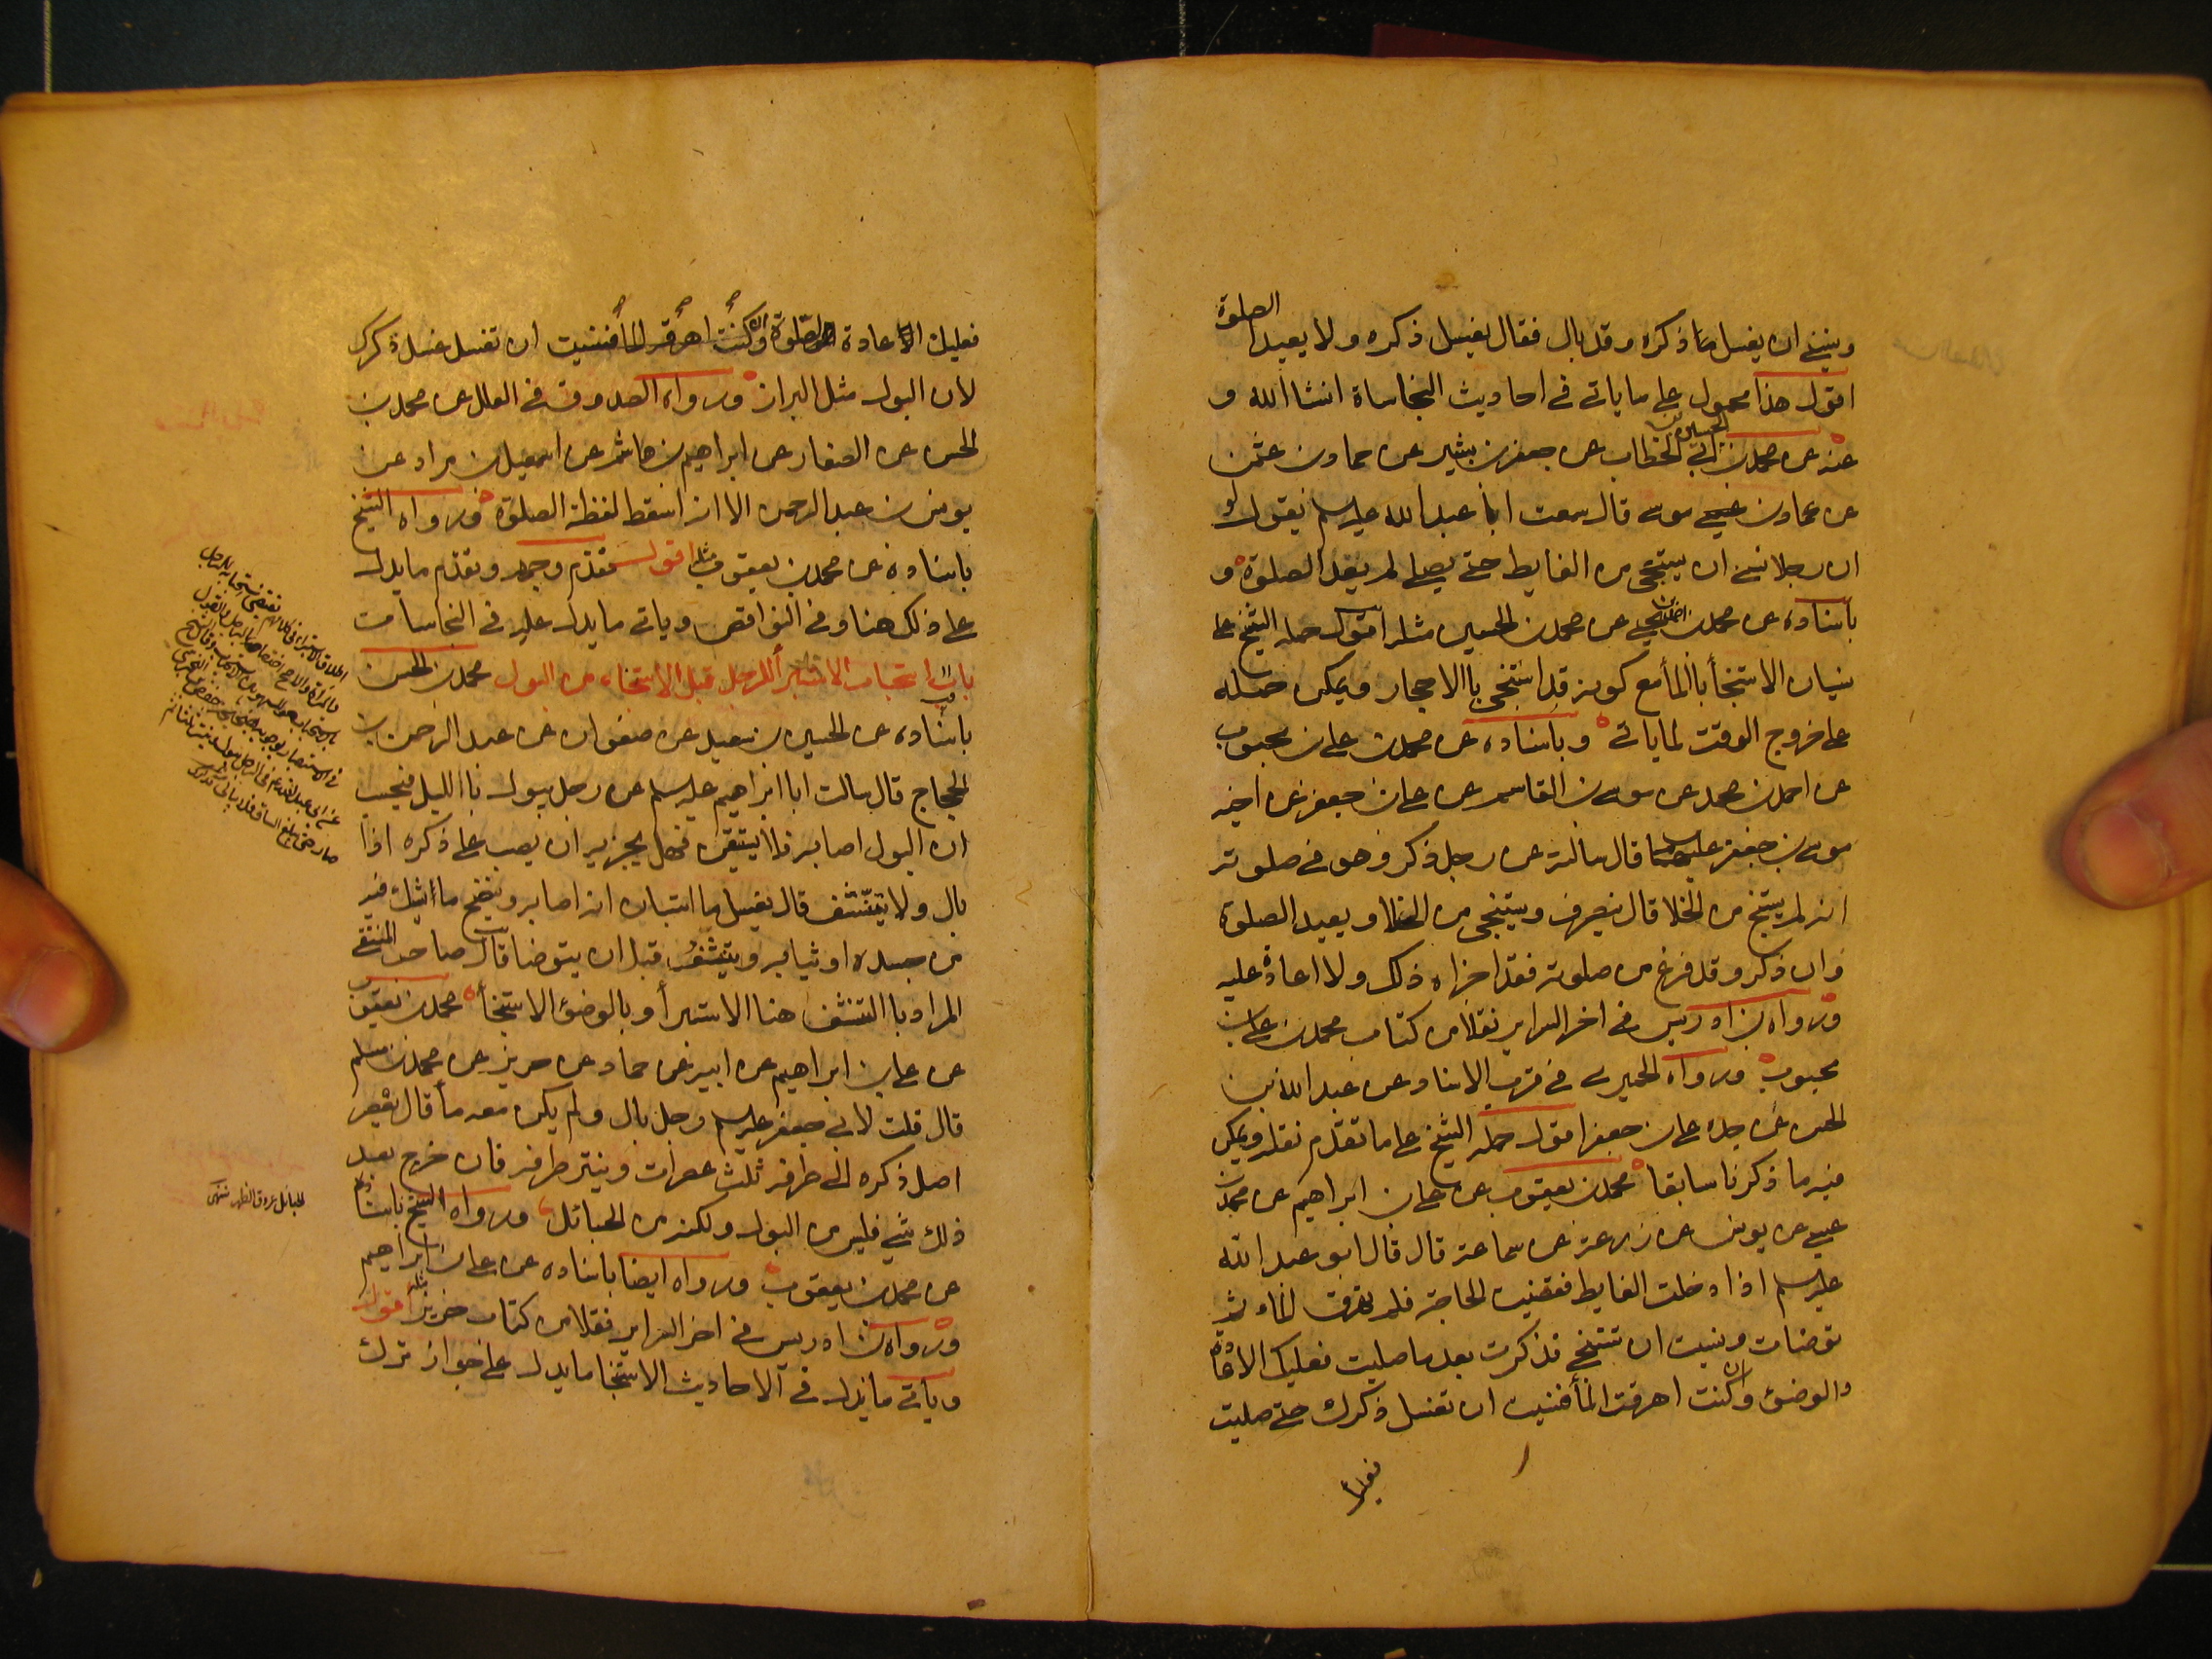 وينسى ان يغسل ذكره وقد بال فقال يغسل ذكره ولا يعيد الصلوة
اقول هذا محمول على ما ياتى فى احاديث النجاساة انشا الله و
عنه عن محمد بن الحسين بن ابى الخطاب عن جعفر بن بشير عن حماد بن عثمن
عن عمار بن موسى قال سمعت ابا عبد الله عليه السلم يقول لو
ان رجلا نسى ان يستنجى من الغايط حتى يصلى لم يعد الصلوة و
باسناده عن محمد بن احمد بن يحيى عن محمد بن الحسين مثله اقول حمله الشيخ على
نسيان الاستنجأ بالمأ مع كونه قد استنجى باالاحجار ويمكن حمله
على خروج الوقت لما ياتى وباسناده عن محمد بن على بن محبوب
عن احمد بن محمد عن موسى بن القاسم عن على بن جعفر عن اخيه
موسى بن جعفر عليهما قال سالته عن رجل ذكر وهو فى صلوته
انه لم يستنج من الخلا قال ينصرف ويستنجى من الخلا ويعيد الصلوة
وان ذكر وقد فرغ من صلوته فقد اجزاه ذلك ولا اعادة عليه
ورواه بن ادريس فى اخر السراير نقلا من كتاب محمد بن على بن
محبوب ورواه الحميرى فى قرب الاسناد عن عبد الله بن
الحسن عن جده على بن جعفر اقول حمله الشيخ على ما تقدم نقله ويمكن
فيه ما ذكرنا سابقا محمد بن يعقوب عن على بن ابراهيم عن محمد بن
عيسى عن يونس عن زرعة عن سماعة قال قال ابو عبد الله
عليه السلم اذا دخلت الغايط فقضيت الحاجة فلم تهرق الماء ثم
توضات ونسيت ان تستنجى فذكرت بعد ما صليت فعليك الاعادة
والوضؤ وان كنت اهرقت المأ فنسيت ان تغسل ذكرك حتى صليت
فعليك
فعليك الاعادة الصلوة وان كنت اهرقت المأ فنسيت ان تغسل غسل ذكرك
لان البول مثل البراز ورواه الصدوق فى العلل عن محمد بن
الحسن عن الصفار عن ابراهيم بن هاشم عن اسمعيل بن مرار عن
يونس بن عبد الرحمن الا انه اسقط لفظة الصلوة ورواه الشيخ
باسناده عن محمد بن يعقوب مثله اقول تقدم وجهه وتقدم ما يدل
على ذلك هنا وفى النواقض وياتى ما يدل عليه فى النجاسات
باب استحباب الاستبرأ للرجل قبل الاستنجاء من البول محمد بن الحسن
باسناده عن الحسين بن سعيد عن صفوان عن عبد الرحمن بن
الحجاج قال سالت ابا ابراهيم عليه السلم عن رجل يبول بالليل فيحسب
ان البول اصابه فلا يستيقن فهل يجزيه ان يصب على ذكره اذا
بال ولا يتنشف قال يغسل ما استبان انه اصابه وينضح ما يشك فيه
من جسده او ثيابه ويتنشف قبل ان يتوضا قال صاحب المنتقى
المراد باالتنشف هنا الاستبرأ وبالوضؤ الاستنجأ محمد بن يعقوب
عن على بن ابراهيم عن ابيه عن حماد عن حريز عن محمد بن مسلم
قال قلت لابى جعفر عليه السلم رجل بال ولم يكن معه مأ قال يعصر
اصل ذكره الى طرفه ثلث عصرات وينتر طرفه فان خرج بعد
ذلك شى فليس من البول ولكنه من الحبائل ورواه الشيخ باسناده
عن محمد بن يعقوب ورواه ايضا باسناده عن على بن ابراهيم
ورواه بن ادريس فى اخر السراير نقلا من كتاب حريز مثله اقول
وياتى ما يدل فى الاحاديث الاستنجا ما يدل على جواز ترك
الحبائل عروق الظهر منتهى